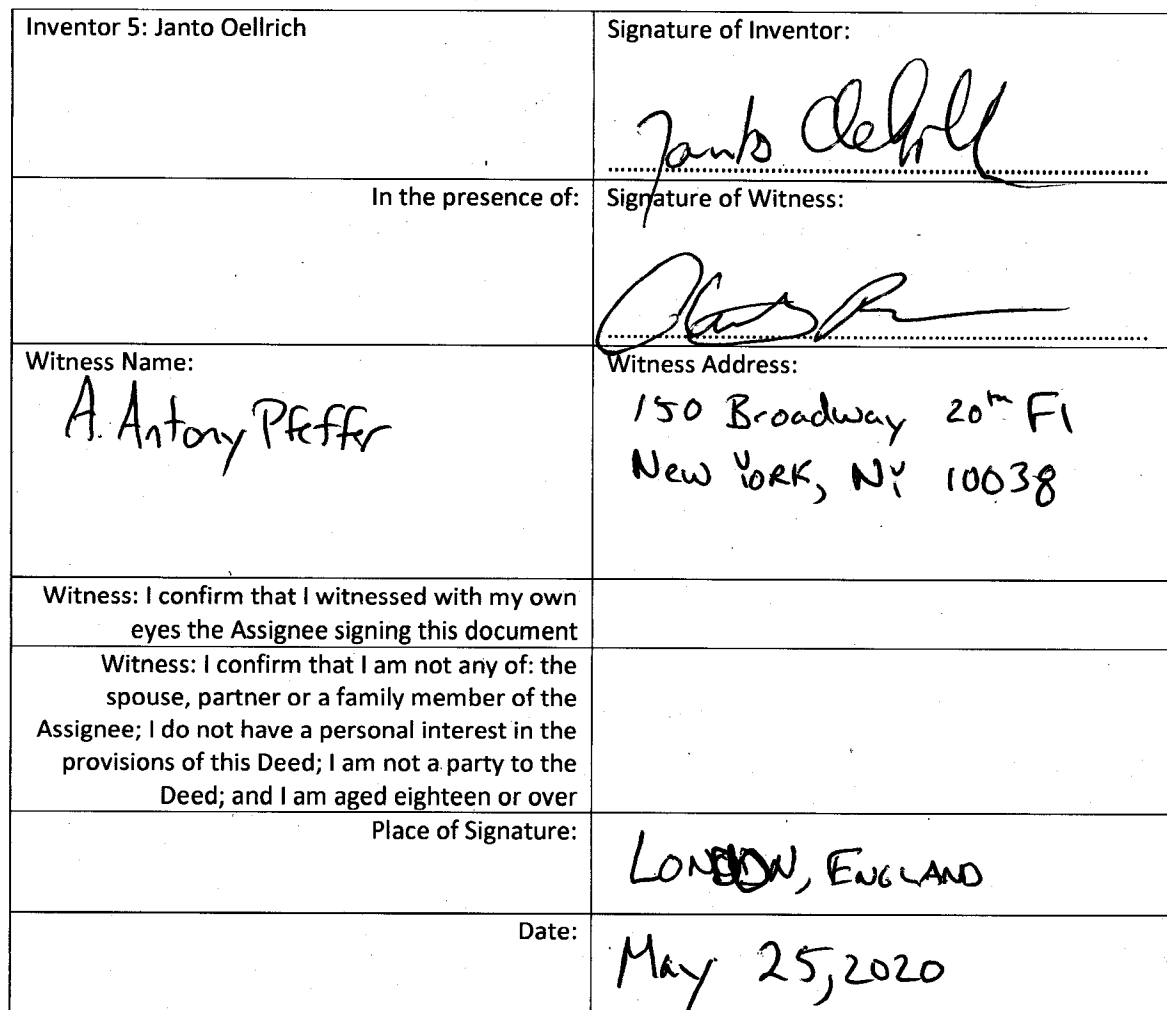 Inventor 5: Janto Oellrich
Signature of Inventor:
Janto Oellrich
In the presence of:
Signature of Witness:
Witness Name:
A. Antony Pfeffer
Witness Address:
150 Broadway 20th Fl
New York, NY 10038
Witness: I confirm that I witnessed with my own
eyes the Assignee signing this document
Witness: I confirm that I am not any of: the
spouse, partner or a family member of the
Assignee; I do not have a personal interest in the
provisions of this Deed; I am not a party to the
Deed; and I am aged eighteen or over
Place of Signature:
LONDON, ENGLAND
Date:
May 25, 2020